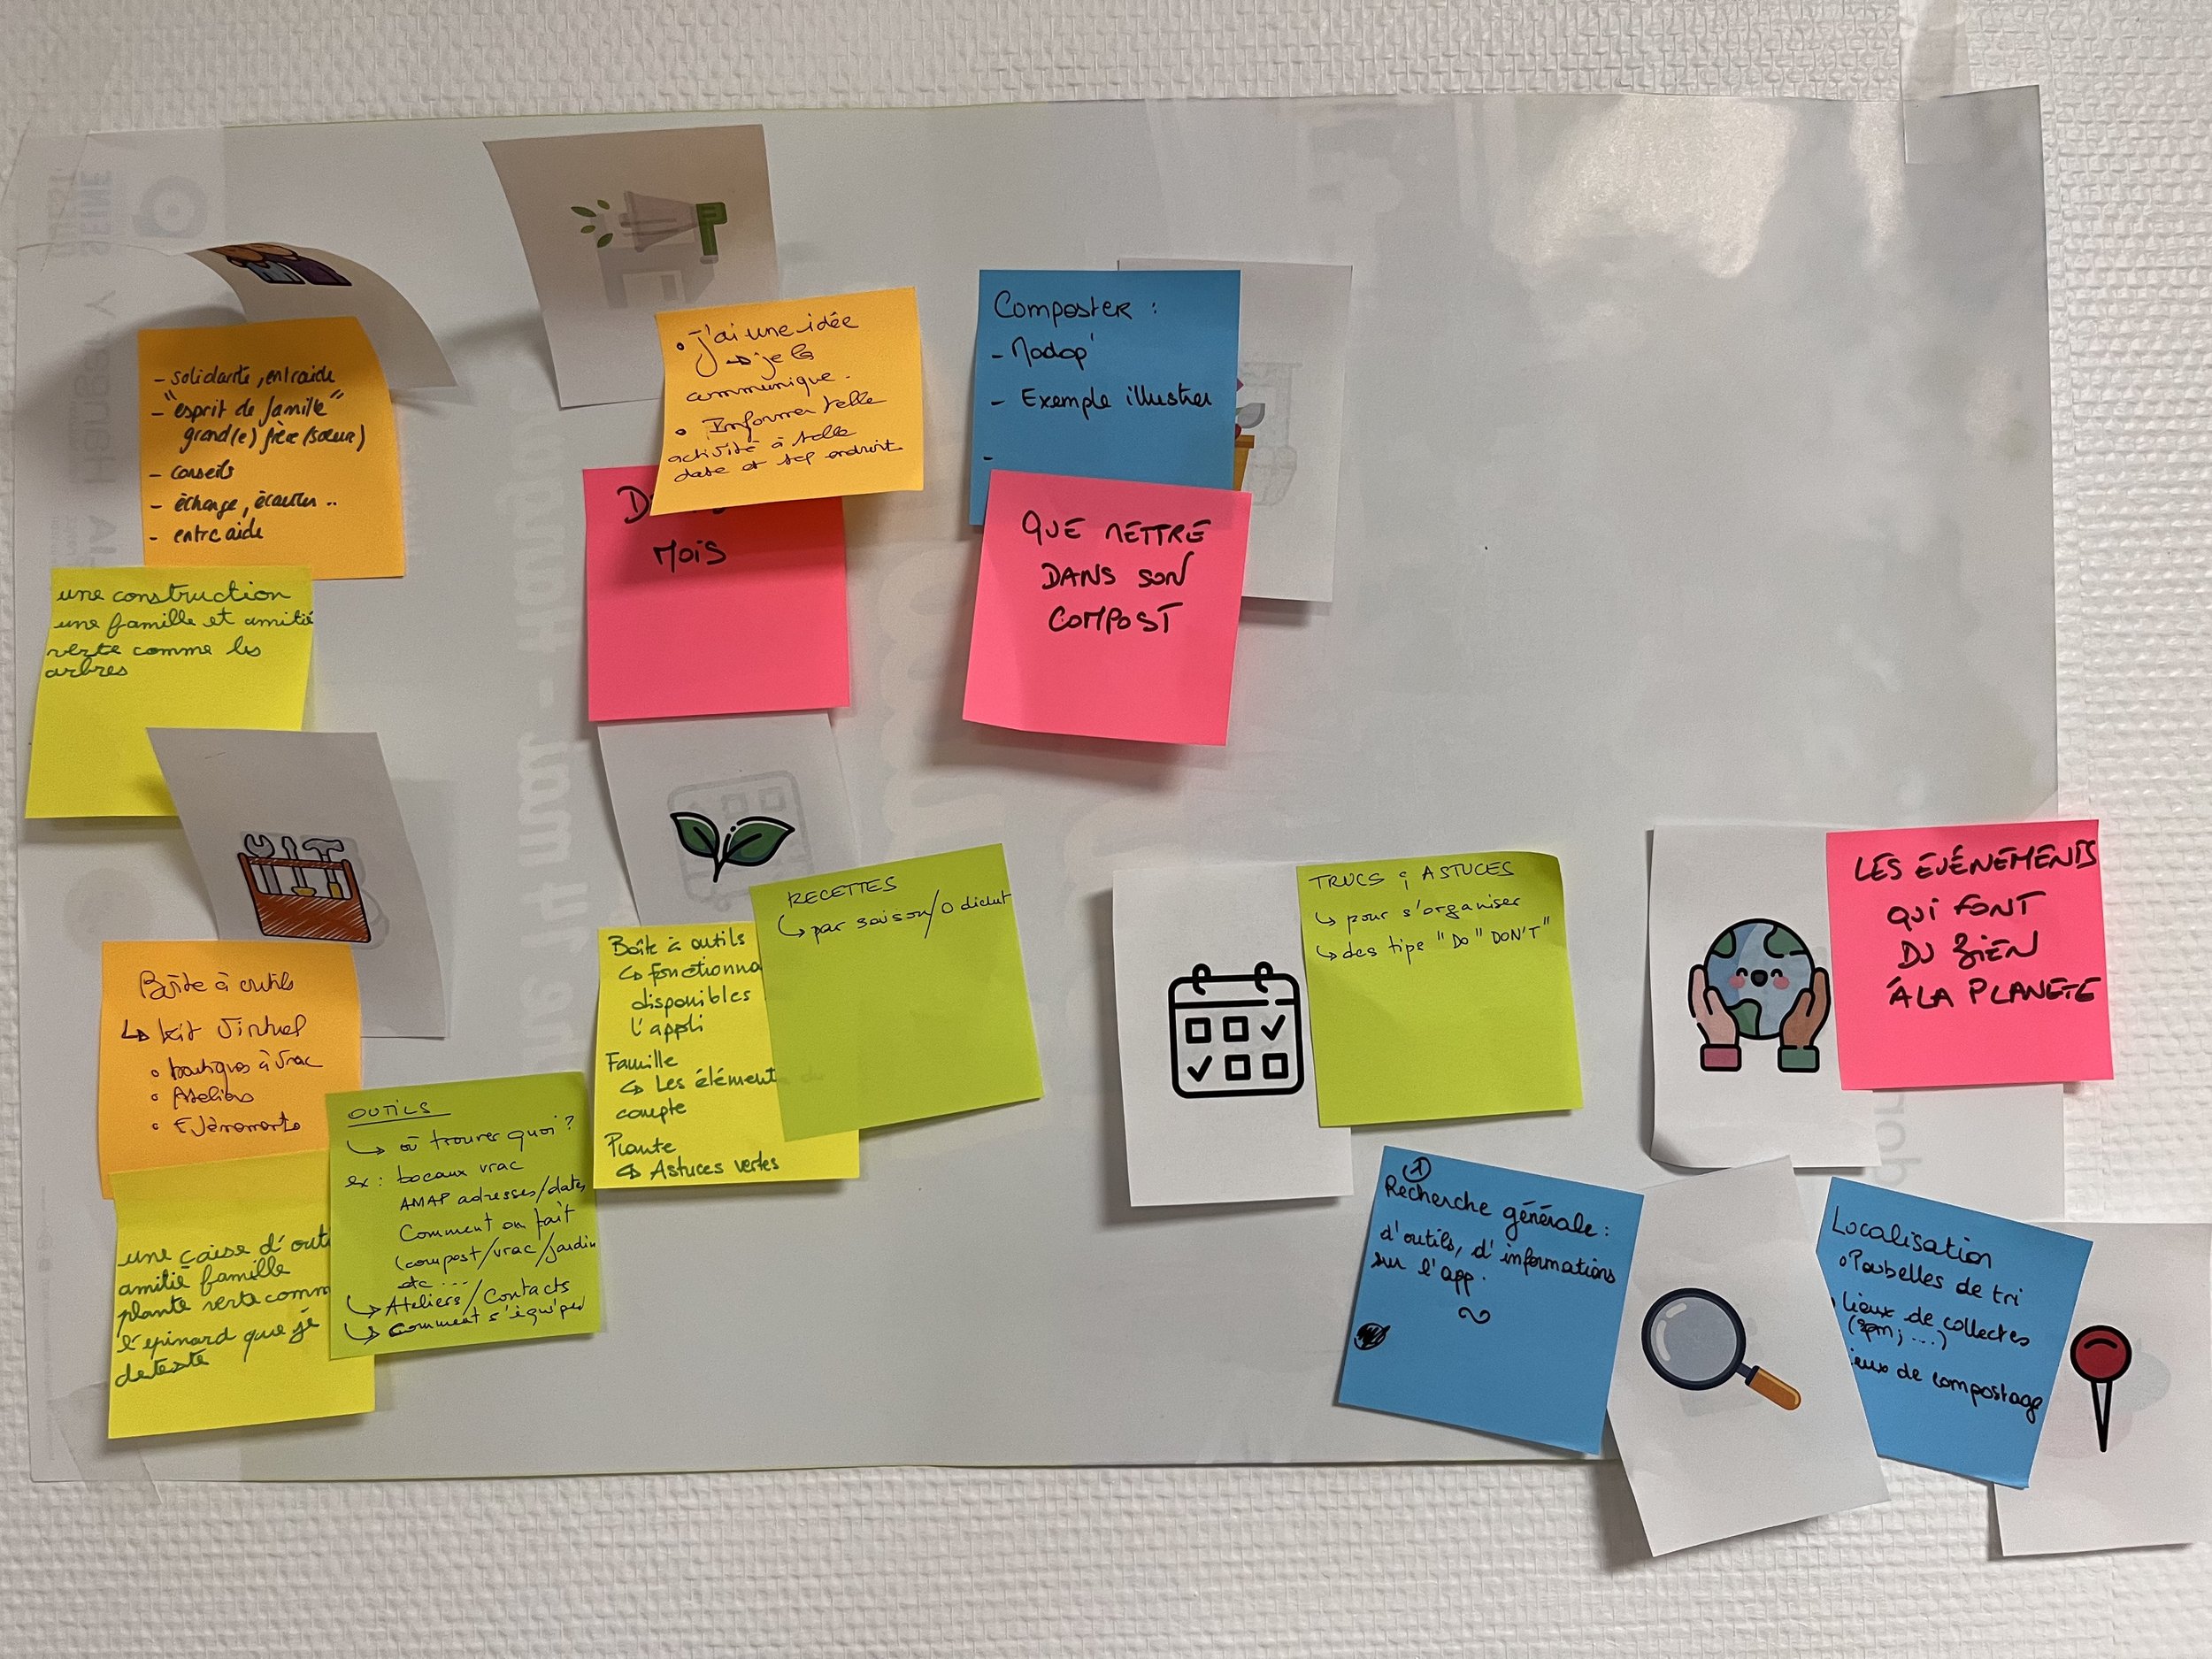 - solidarité, entraide
- "esprit de famille"
grand(e) frère/sœur)
- conseils
- échange, écouter..
- entre aide
une construction
une famille et amitié
verte comme les
arbres
• J'ai une idée
→ je la
communique.
• Informer telle
activité à telle
date et tel endroit
D
MOIS
Composter :
- Madop'
- Exemple illustrer
-
QUE METTRE
DANS SON
COMPOST
Boîte à outils
↳ kit virtuel
• boutiques à vrac
• Ateliers
• Evènements
une caise d'outi
amitié famille
plante verte comm
l'epinard que je
deteste
OUTILS
↳ où trouver quoi ?
ex : bocaux vrac
AMAP adresses/dates
Comment on fait
(compost/vrac/jardin
etc ...
↳ Ateliers/Contacts
↳ comment s'équiper
Boîte à outils
↳ fonctionna
disponibles
l'appli
Famille
↳ Les élément
compte
Plante
↳ Astuces vertes
RECETTES
↳ par saison/0 déchet
TRUCS & ASTUCES
↳ pour s'organiser
↳ des tipe "DO" DON'T"
LES EVÉNEMENTS
QUI FONT
DU BIEN
À LA PLANETE
①
Recherche générale :
d'outils, d'informations
sur l'app.
Localisation
• Poubelles de tri
lieux de collectes
ieux de compostage